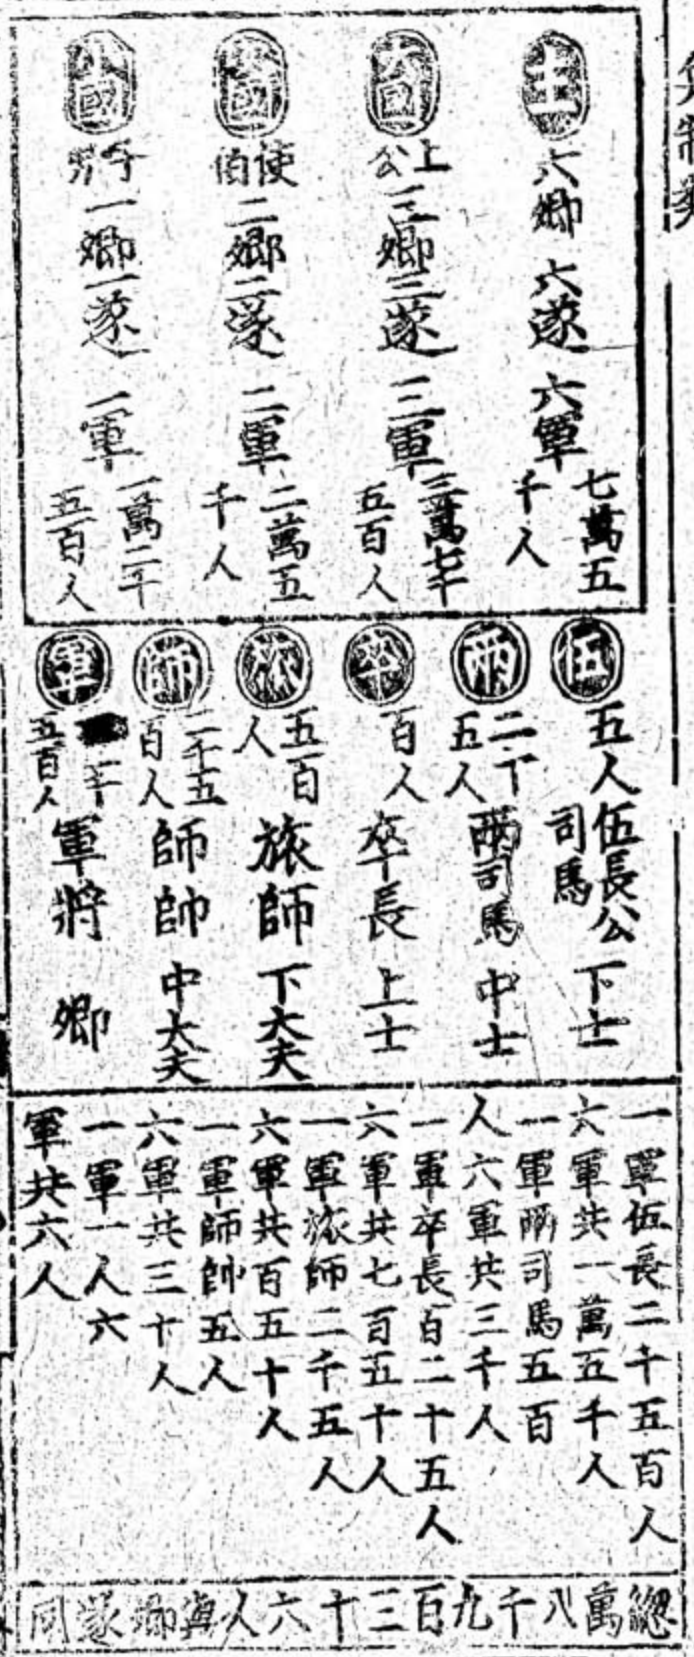 王
六鄉六遂
六軍
七萬五
千人
大國
上
公
三鄉三遂
三軍
三萬七千
五百人
次國
侯
伯
二鄉二遂
二軍
二萬五
千人
小國
子
男
一鄉一遂
一軍
一萬二千
五百人
伍
五人
伍長公
司馬
下士
兩
二十
五人
兩司馬
中士
卒
百人
卒長
上士
旅
五百
人
旅師
下大夫
師
二千五
百人
師帥
中大夫
軍
二千
五百人
軍將
卿
一軍伍長二千五百人
六軍共一萬五千人
一軍兩司馬五百
人六軍共三千人
一軍卒長百二十五人
六軍共七百五十人
一軍旅師二千五人
六軍共百五十人
一軍師帥五人
六軍共三十人
一軍一人六
軍共六人
總萬八千九百三十六人與鄉遂同